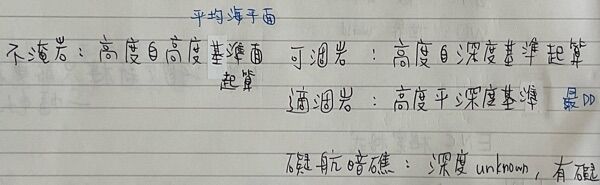 平均海平面
不淹岩：高度自高度基準面起算
可涸岩：高度自深度基準起算
適涸岩：高度平深度基準 最DD
礙航暗礁：深度unknown，有礙